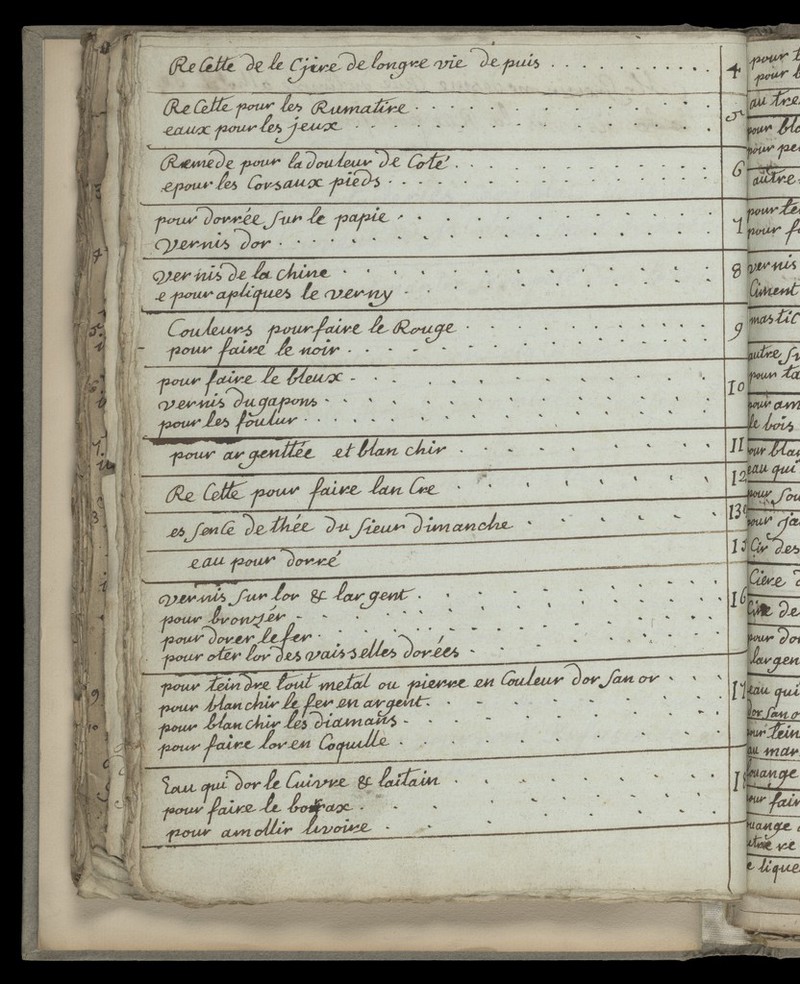 ReCette de le Cjire de longre vie depuis . . . . . . . . . . . 4
ReCette pour les Rumatire . . . . . . . . .
eaux pour les jeux . . . . . . . . . . 5
Remede pour la douleur de Coté . . . . . . . . .
e pour les Corsaux pieds . . . . . . . . . 6
pour dorrée sur le papie . . . . . . . .
Vernis dor . . . . . . . . . . 7
vernis de la chine . . . . . . . . . 8
e pour apliques le verny . . . . . . . .
Couleurs pour faire le Rouge . . . . . . . .
pour faire le noir . . . . . . . . . 9
pour faire le bleux . . . . . . . .
vernis du gapons . . . . . . . . . 10
pour les foulur . . . . . . . . . .
pour argenttée et blanchir . . . . . . . 11
ReCette pour faire lanCre . . . . . . . 12
essenCe de thée du sieur dimanche . . . . . 13
eau pour dorré 15
vernis sur lor & largent . . . . . . . . 16
pour bronzér . . . . . . . . .
pour dorer le fer . . . . . . . . .
pour oter lor des vaisselles dorées . . . . . . .
pour teindre tout metal ou pierre en Couleur dor san or . . . 17
pour blanchir le fer en argent . . . . . . .
pour blanchir les diamans . . . . . . .
pour faire lor en Coquille . . . . . . . .
Eau qui dor le Cuivre & laitain . . . . . . .
pour faire le borax . . . . . . . .
pour amollir livoire . . . . . . . .
pour
pour
autre
pour
pour
autre
pour
pour
vernis
Ciment
mastic
autre
pour
pour
le bois
eau qui
pour
pour
des
Ciere
de
pour
largen
eau qui
lor san o
au mar